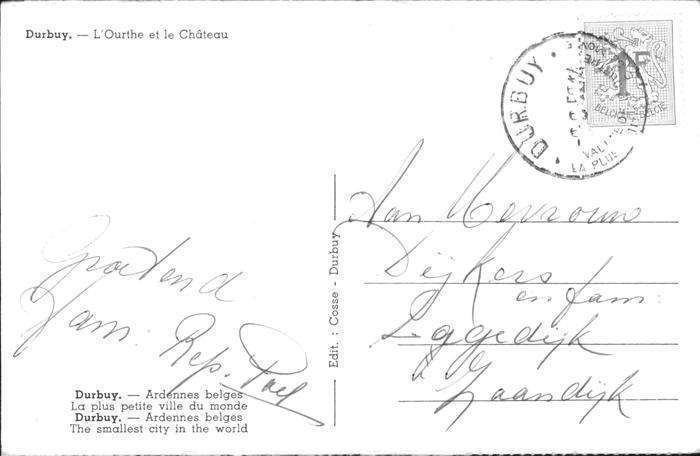 Durbuy. — L'Ourthe et le Château
DURBUY
LA PLUS
1F
BELGIQUE BELGIE
Aan Mevrouw
Dijkers
en fam:
Laggedijk
Zaandijk
Groetend
Fam. Rep.
Edit. : Cosse - Durbuy
Durbuy. — Ardennes belges
La plus petite ville du monde
Durbuy. — Ardennes belges
The smallest city in the world